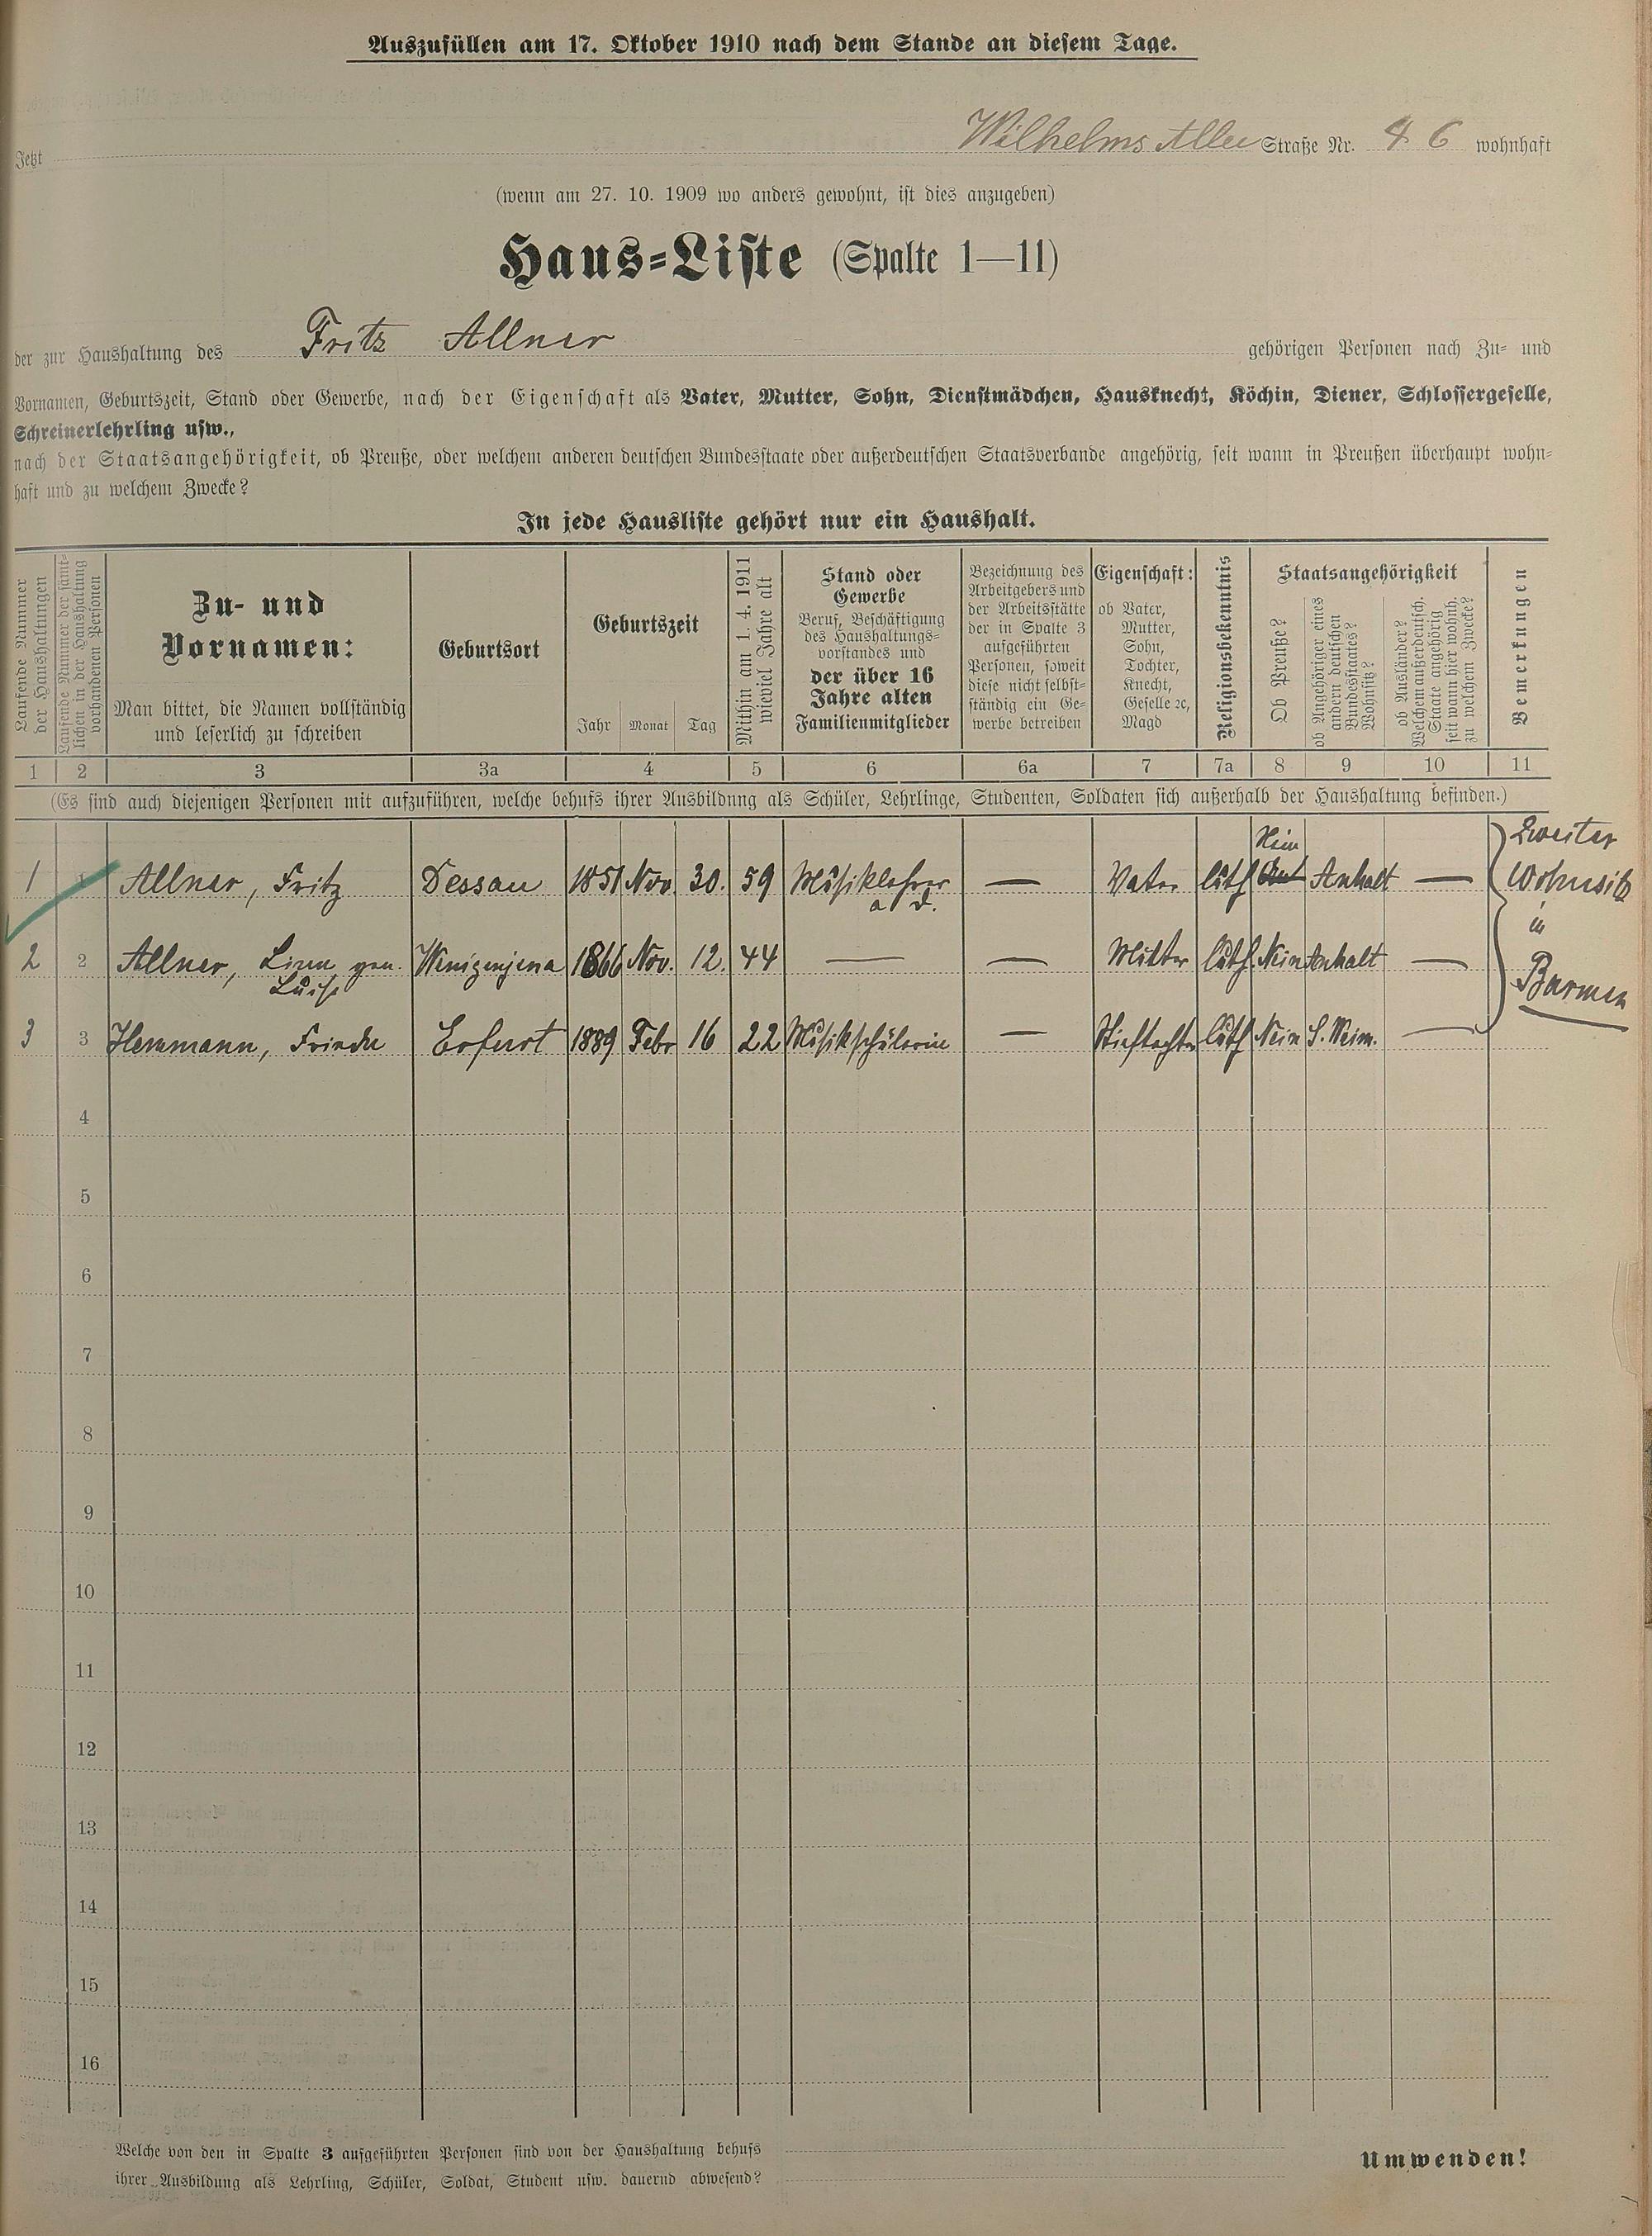 Auszufüllen am 17. Oktober 1910 nach dem Stande an diesem Tage.
Jetzt Wilhelms Allee Straße Nr. 46 wohnhaft
(wenn am 27. 10. 1909 wo anders gewohnt, ist dies anzugeben)
Haus-Liste (Spalte 1—11)
der zur Haushaltung des Fritz Allner gehörigen Personen nach Zu- und
Vornamen, Geburtszeit, Stand oder Gewerbe, nach der Eigenschaft als Vater, Mutter, Sohn, Dienstmädchen, Hausknecht, Köchin, Diener, Schlossergeselle,
Schreinerlehrling usw.,
nach der Staatsangehörigkeit, ob Preuße, oder welchem anderen deutschen Bundesstaate oder außerdeutschen Staatsverbande angehörig, seit wann in Preußen überhaupt wohn-
haft und zu welchem Zwecke?
In jede Hausliste gehört nur ein Haushalt.
Laufende Nummer
der Haushaltungen
Laufende Nummer der sämt-
lichen in der Haushaltung
vorhandenen Personen
Zu- und
Vornamen:
Man bittet, die Namen vollständig
und leserlich zu schreiben
Geburtsort
Geburtszeit
Jahr Monat Tag
Mithin am 1. 4. 1911
wieviel Jahre alt
Stand oder
Gewerbe
Beruf, Beschäftigung
des Haushaltungs-
vorstandes und
der über 16
Jahre alten
Familienmitglieder
Bezeichnung des
Arbeitgebers und
der Arbeitsstätte
der in Spalte 3
aufgeführten
Personen, soweit
diese nicht selbst-
ständig ein Ge-
werbe betreiben
Eigenschaft:
ob Vater,
Mutter,
Sohn,
Tochter,
Knecht,
Geselle ꝛc,
Magd
Religionsbekenntnis
Staatsangehörigkeit
Ob Preuße?
ob Angehöriger eines
andern deutschen
Bundesstaates?
Wohnsitz?
ob Ausländer?
Welchem außerdeutsch.
Staate angehörig
seit wann hier wohnh.
zu welchem Zwecke?
Bemerkungen
1 2 3 3a 4 5 6 6a 7 7a 8 9 10 11
(Es sind auch diejenigen Personen mit aufzuführen, welche behufs ihrer Ausbildung als Schüler, Lehrlinge, Studenten, Soldaten sich außerhalb der Haushaltung befinden.)
Nein
1 1 Allner, Fritz Dessau 1851 Nov. 30. 59 Musiklehrer — Vater luth Anhalt —
a. D.
2 2 Allner, Linna gen. Wenigenjena 1866 Nov. 12. 44 — — Mutter luth. Nein Anhalt —
Luise
3 3 Hemmann, Frieda Erfurt 1889 Febr 16 22 Musikschülerin — Stieftochter luth Nein S. Weim. —
Zweiter
Wohnsitz
in
Barmen
4
5
6
7
8
9
10
11
12
13
14
15
16
Welche von den in Spalte 3 aufgeführten Personen sind von der Haushaltung behufs
ihrer Ausbildung als Lehrling, Schüler, Soldat, Student usw. dauernd abwesend?
Umwenden!